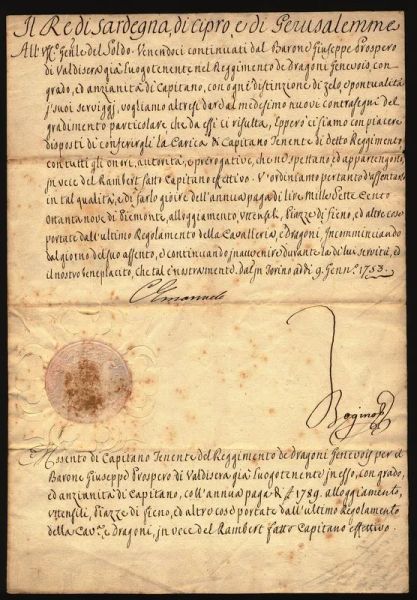 Il Re di Sardegna, di Cipro, e di Gerusalemme
All' Uff.° Gen.le del Soldo. Venendoci continuati dal Barone Giuseppe Prospero
di Valdisera già Luogotenente nel Reggimento de Dragoni Genevois, con
grado, ed anzianità di Capitano, con ogni distinzione di zelo e pontualità
i suoi serviggj, vogliamo altresì dar al medesimo nuovi contrasegni del
gradimento particolare che da essi ci risulta, Epperò ci siamo con piacere
disposti di conferirgli la Carica di Capitano Tenente di detto Reggimento
con tutti gli onori, autorità, e prerogative, che ne spettano, ed appartengono,
in vece del Rambert fatto Capitano effettivo. V'ordiniamo pertanto d'assentarlo
in tal qualità, e di farlo gioire dell'annua paga di lire Mille Sette Cento
Ottanta nove di Piemonte, alloggiamento, uttensili, Piazze di fieno, ed altre cose
portate dall'ultimo Regolamento della Cavalleria, e Dragoni, Incominciando
dal giorno del suo assento, e continuando in avvenire durante la di lui servitù, ed
il nostro beneplacito, che tal è nostra mente. Dat. in Torino addi 9. Genn.° 1753.
C Emanuele
Bogino
Assento di Capitano Tenente del Reggimento de Dragoni Genevois per il
Barone Giuseppe Prospero di Valdisera già Luogotenente in esso, con grado,
ed anzianità di Capitano, coll'annua paga di 1789. alloggiamento,
uttensili, Piazze di fieno, ed altro cose portate dall'ultimo Regolamento
della Cav.a e Dragoni, in vece del Rambert fatto Capitano effettivo.